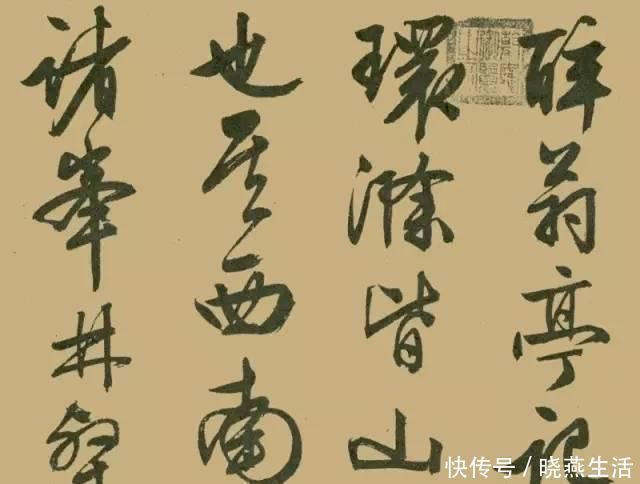 醉翁亭記
環滁皆山
也其西南
諸峯林壑
快传号/晓燕生活